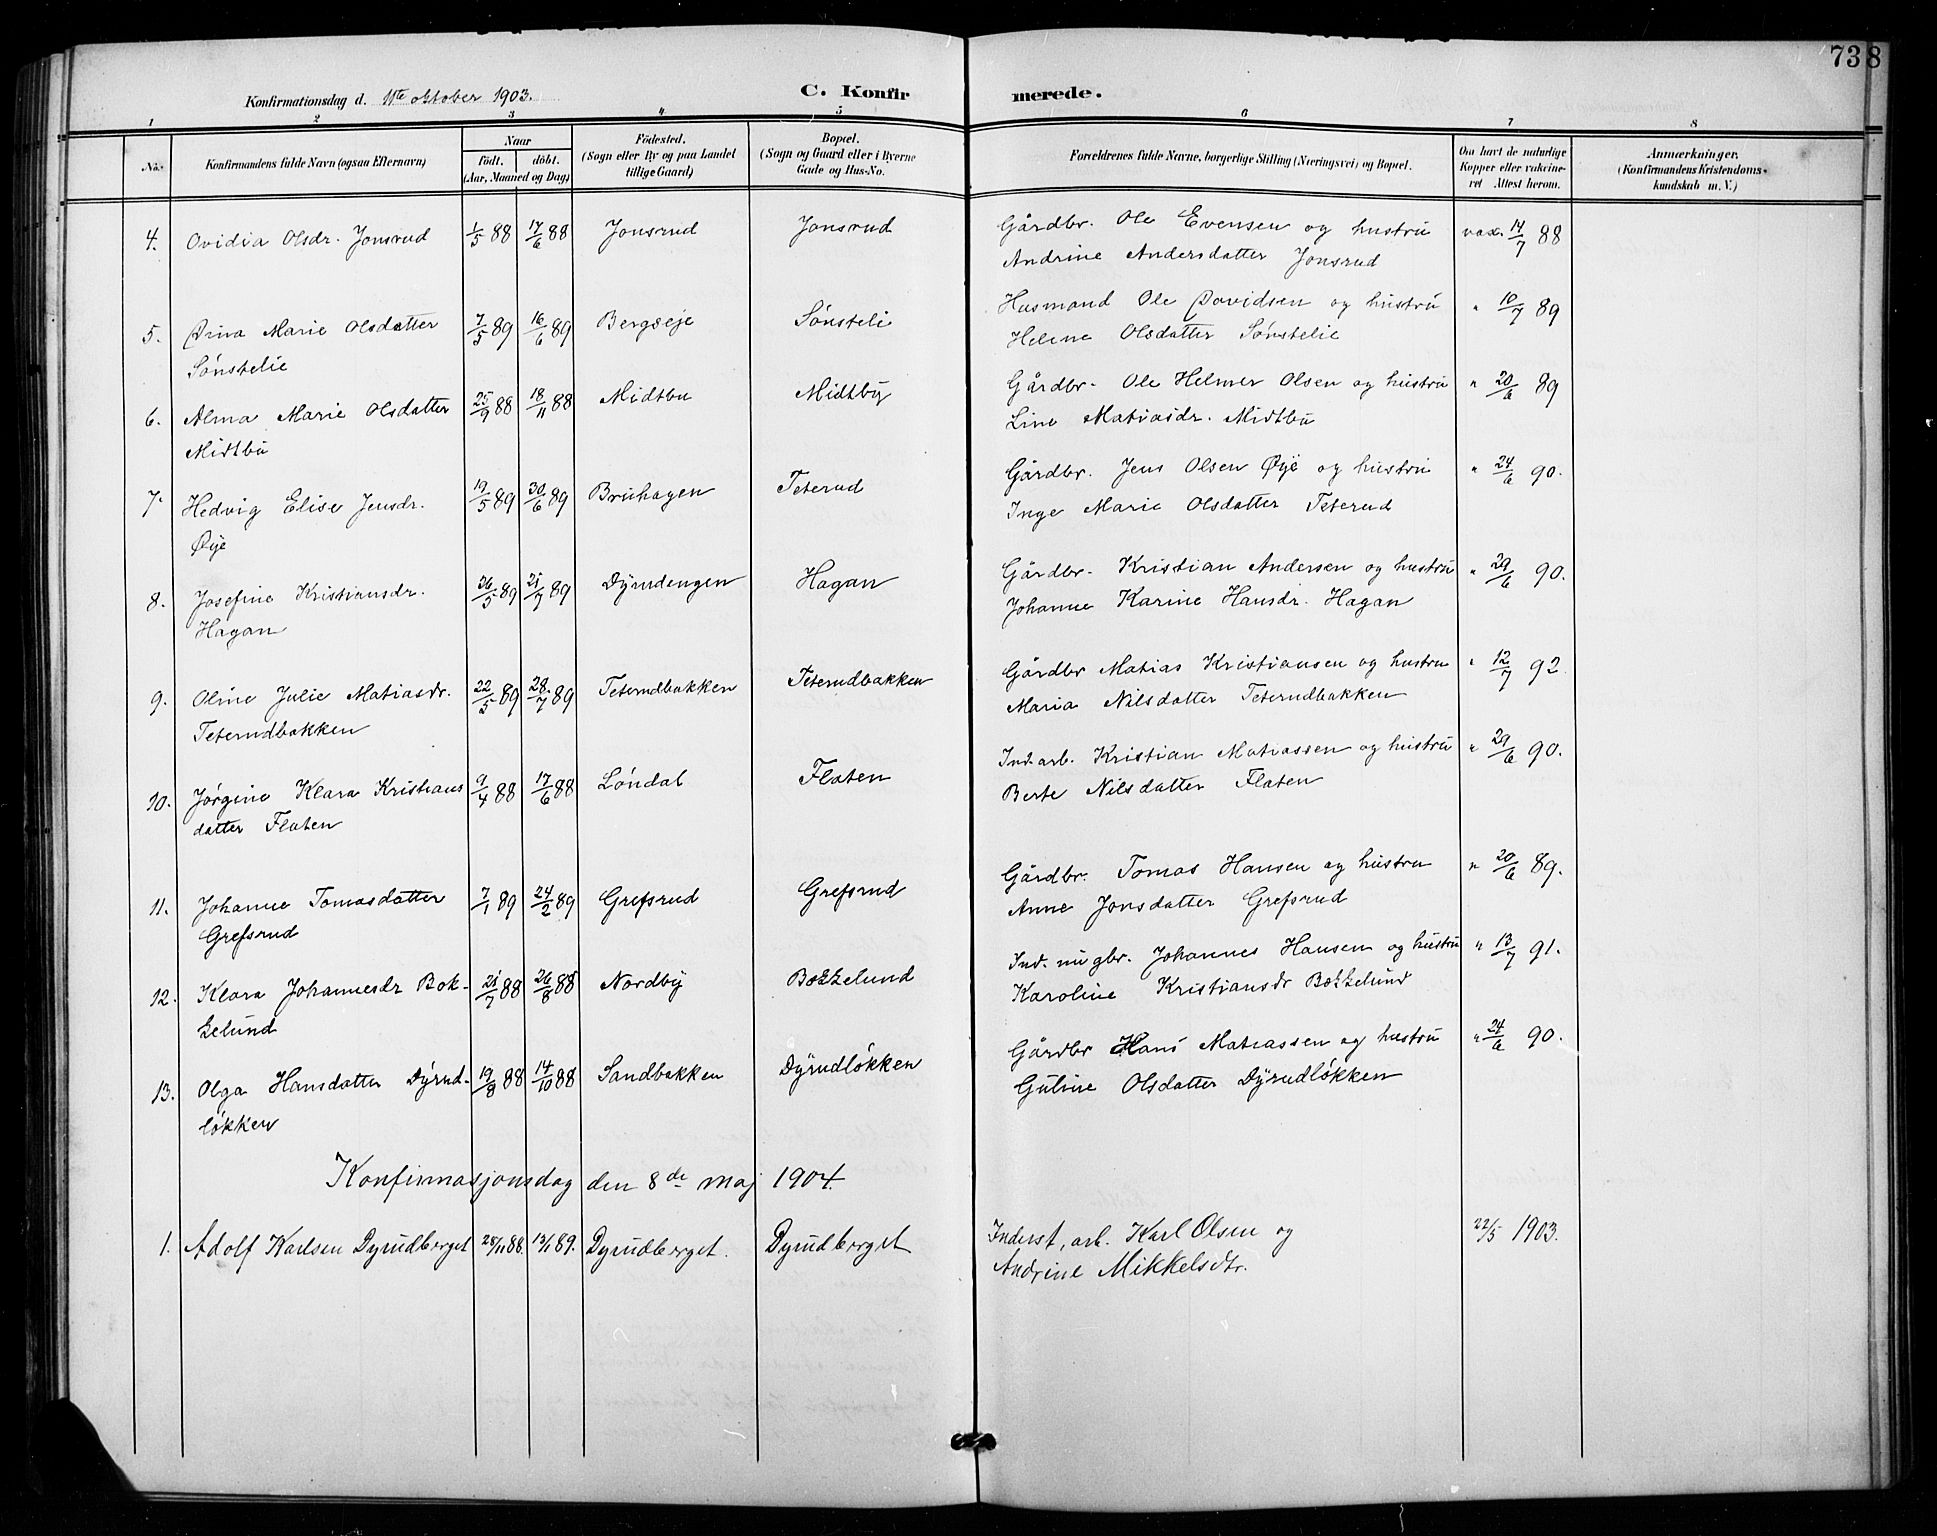 738
Konfirmationsdag d. 11te oktober 1903.
C. Konfirmerede.
1 2 3 4 5 6 7 8
No.
Konfirmandens fulde Navn (ogsaa Efternavn)
Naar
födt. döbt.
(Aar, Maaned og Dag)
Födested.
(Sogn eller By og paa Landet
tillige Gaard)
Bopæl.
(Sogn og Gaard eller i Byerne
Gade og Hus-No.
Forældrenes fulde Navne, borgerlige Stilling (Næringsvei) og Bopæl.
Om havt de naturlige
Kopper eller vakcine-
ret Attest herom.
Anmærkninger.
(Konfirmandens Kristendoms-
kundskab m. V.)
4. Ovidia Olsdr. Jonsrud 1/5 88 17/6 88 Jonsrud Jonsrud Gårdbr. Ole Evensen og hustru vax. 14/7 88
Andrine Andersdatter Jonsrud
5. Marie Olsdatter 7/5 89 16/6 89 Bergseje Sønsteli Husmand Ole Davidsen og hustru " 10/7 89
Sønstelie Helene Olsdatter Sønstelie
6. Alma Marie Olsdatter 25/9 88 18/11 88 Midtbu Midtby Gårdbr. Ole Helmer Olsen og hustru " 20/6 89
Midtbu Line Matiasdr. Midtbu
7. Hedvig Elise Jensdr. 19/5 89 30/6 89 Bruhagen Teterud Gårdbr. Jens Olsen Øye og hustru " 24/6 90.
Øye Inge Marie Olsdatter Teterud
8. Josefine Kristiansdr. 26/5 89 21/7 89 Dyrudengen Hagan Gårdbr. Kristian Andersen og hustru " 29/6 90.
Hagan Johanne Karine Hansdr. Hagan
9. Oline Julie Matiasdr. 22/5 89 28/7 89 Teterudbakken Teterudbakken Gårdbr Matias Kristiansen og hustru " 12/7 92
Teterudbakken Maria Nilsdatter Teterudbakken
10. Jørgine Klara Kristians 9/4 88 17/6 88 Løndal Flaten Ind. arb. Kristian Matiassen og hustru " 29/6 90.
datter Flaten Berte Nilsdatter Flaten
11. Johanne Tomasdatter 7/1 89 24/2 89 Grefsrud Grefsrud Gårdbr. Tomas Hansen og hustru " 20/6 89.
Grefsrud Anne Jonsdatter Grefsrud
12. Klara Johannesdr Bek- 21/7 88 26/8 88 Nordby Bekkelund Ind. Johannes Hansen og hustru " 13/7 91.
kelund Karoline Kristiansdr Bekkelund
13. Olga Hansdatter Dyrud- 19/8 88 14/10 88 Sandbakken Dyrudløkken Gårdbr Hans Matiassen og hustru " 24/6 90.
løkken Guline Olsdatter Dyrudløkken
Konfirmasjonsdag den 8de maj 1904.
1. Adolf Karlsen Dyrudberget 28/11 88. 13/1 89. Dyrudberget. Dyrudberget Inderst, arb. Karl Olsen og 22/5 1903.
Andrine Mikkelsdtr.